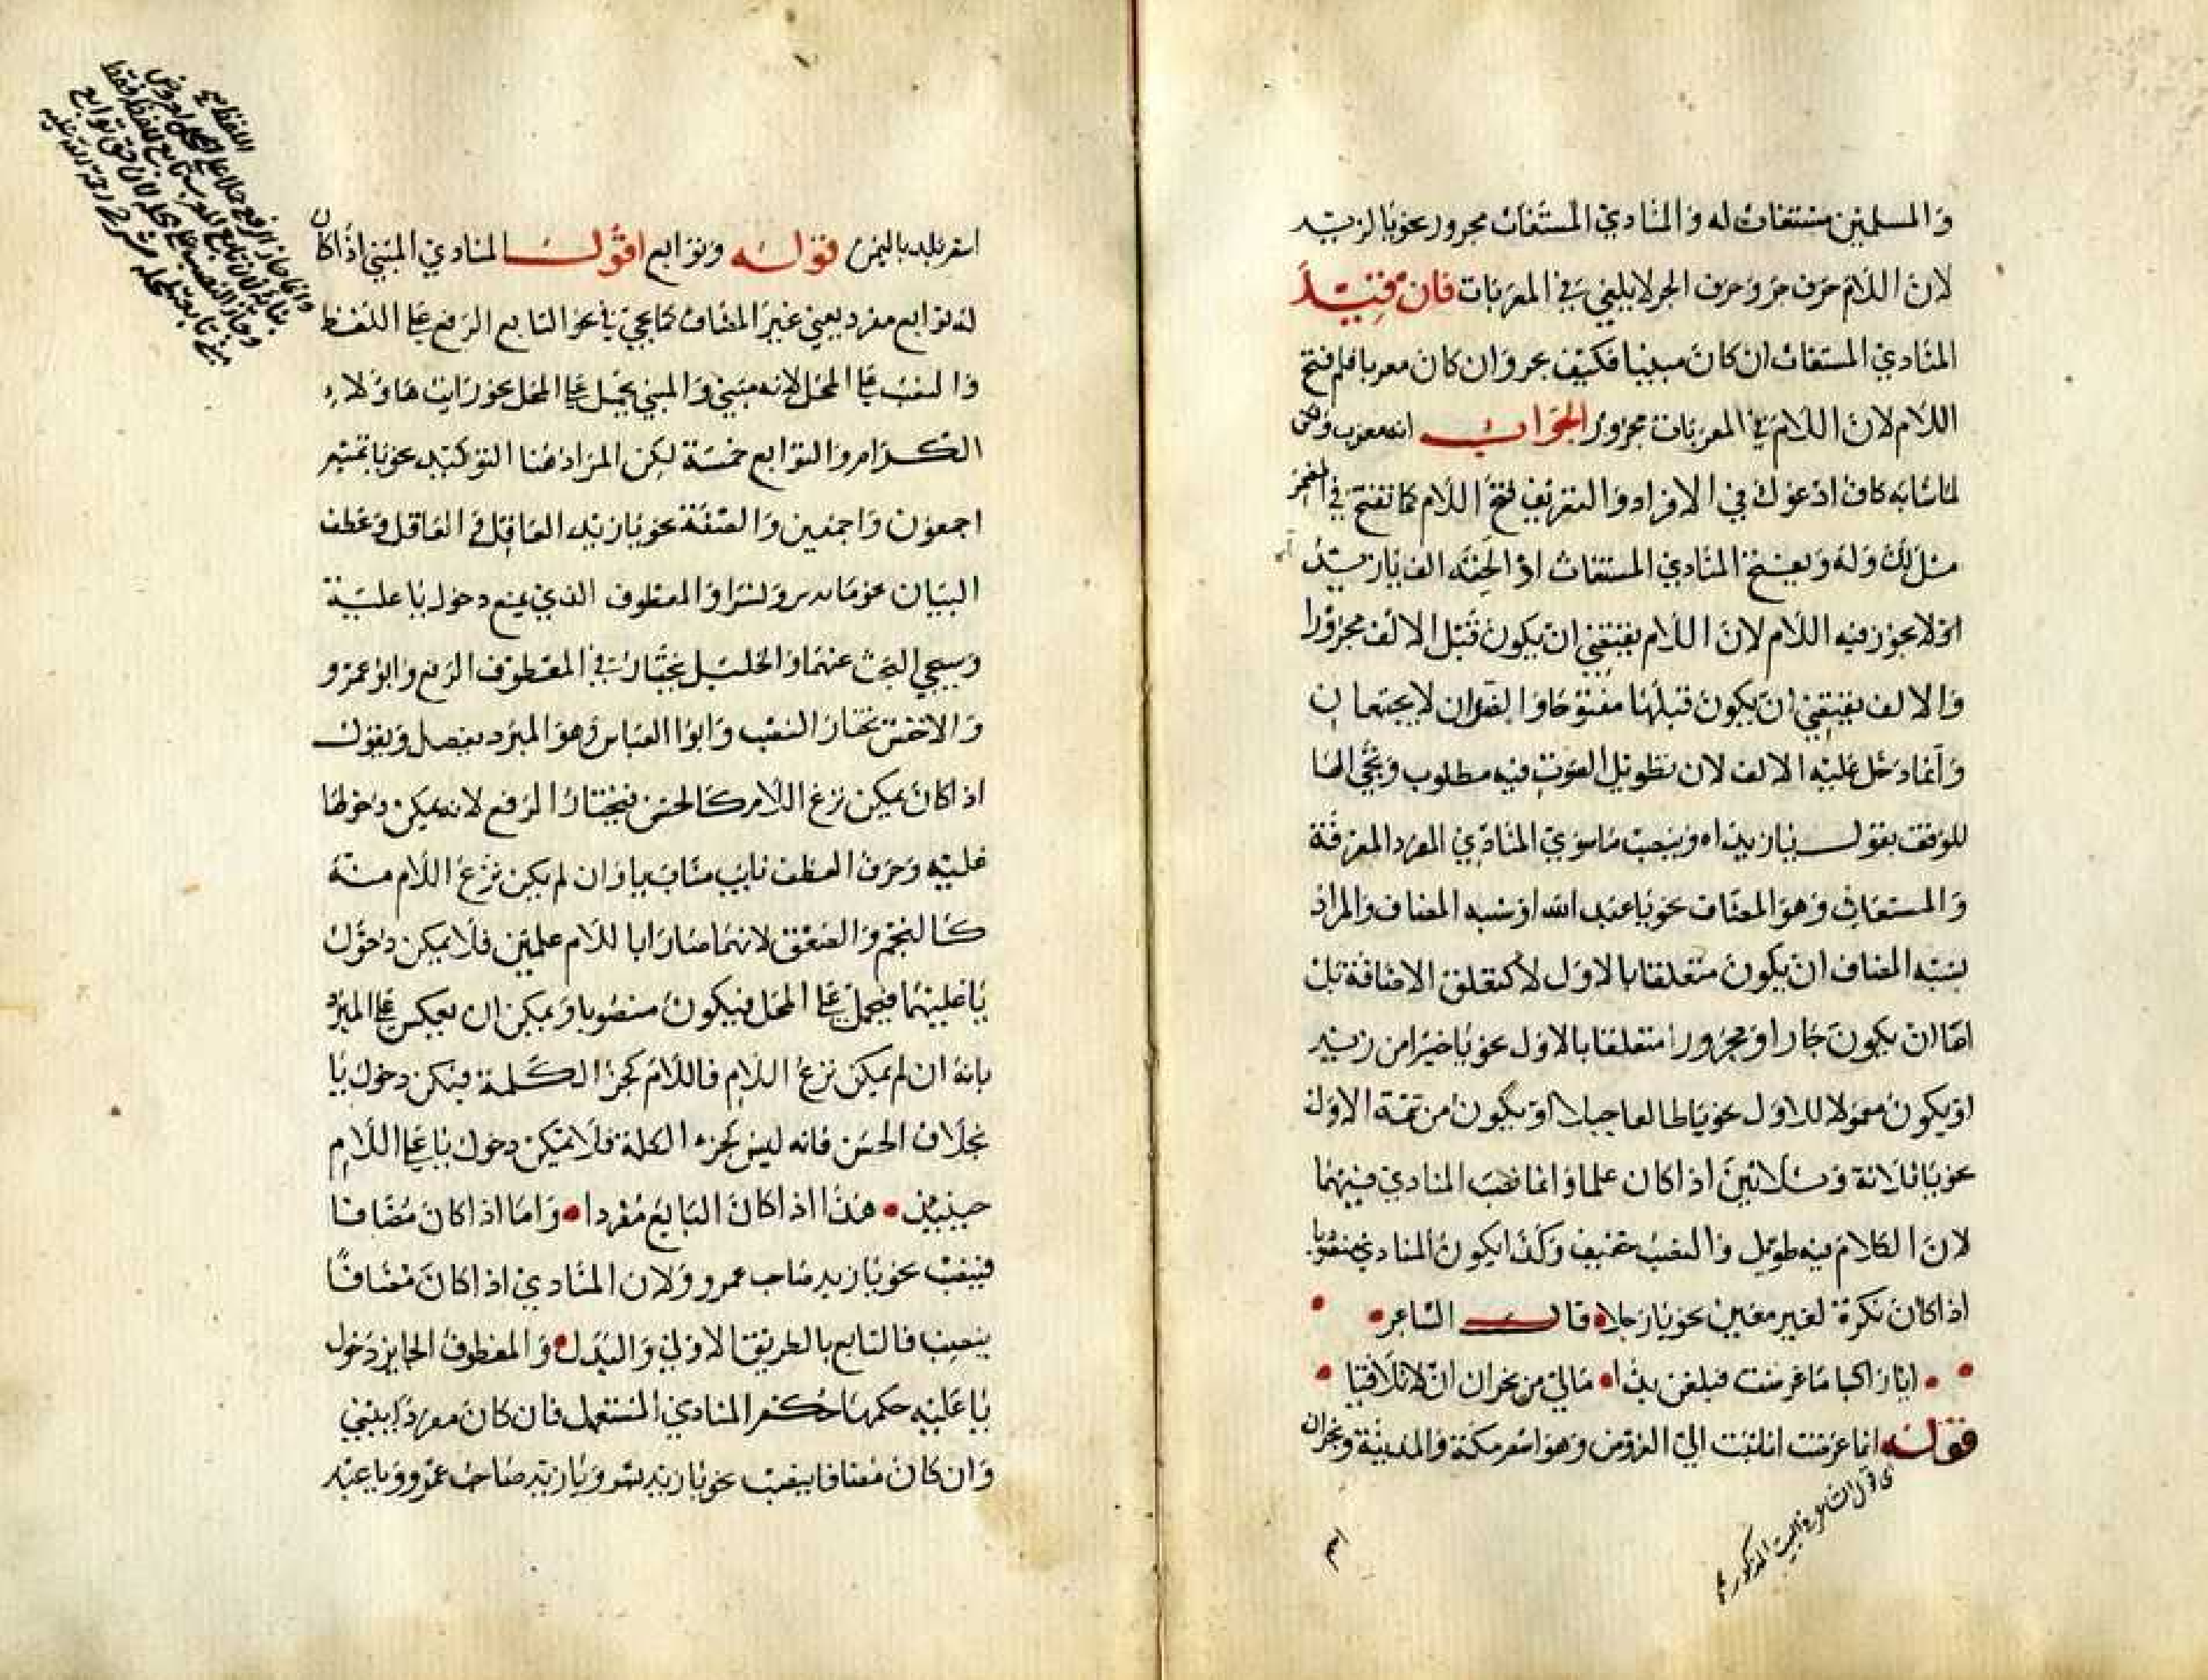 والمسلمين مستغاث له والمنادي المستغاث مجرور نحو يا لزيد
لان اللام حرف جر وحرف الجر لا يلغي في المعربات فان قيل
المنادي المستغاث ان كان مبنيا فكيف يجر وان كان معربا فلم فتح
اللام لان اللام في المعربات مجرور الجواب انه معرب ولكن
لما شابه كاف ادعوك في الافراد والتعريف فتح اللام كما تفتح في المضمر
مثل لك وله ويفتح المنادي المستغاث اذا لحقته الف يا زيدا
اذ لا يجوز فيه اللام لان اللام يقتضي ان يكون قبل الالف مجرورا
والالف يقتضي ان يكون قبلها مفتوحا والضدان لا يجتمعان
وانما دخل عليه الالف لان تطويل الصوت فيه مطلوب ويجي الها
للوقف بقول يا زيداه وينصب ما سوي المنادي المفرد المعرفة
والمستغاث وهو المضاف نحو يا عبد الله او شبه المضاف والمراد
بشبه المضاف ان يكون متعلقا بالاول لا كتعلق الاضافة بل
اما ان يكون جارا ومجرورا متعلقا بالاول نحو يا خيرا من زيد
او يكون معمولا للاول نحو يا طالعا جبلا او يكون من تتمة الاول
نحو يا ثلاثة وثلاثين اذا كان علما وانما نصب المنادي فيهما
لان الكلام فيه طويل والنصب خفيف وكذا يكون المنادي منصوبا
اذا كان نكرة لغير معين نحو يا رجلا قال الشاعر
ايا راكبا ما عرضت فبلغن ندا مالي من نجران ان لا تلاقيا
قوله انما عرضت اي اتيت الي العروض وهو اسم مكة والمدينة ونجران
اي قول الشاعر في البيت المذكور
اسم بلد باليمن قوله وتوابع اقول المنادي المبني اذا كان
له توابع مفرد يعني غير المضاف كما يجي في نحو التابع الرفع علي اللفظ
والنصب علي المحل لانه مبني والمبني يحمل علي المحل نحو رايت هاولاء
الكرام والتوابع خمسة لكن المراد هنا التوكيد نحو يا تميم
اجمعون واجمعين والصفة نحو يا زيد العاقل والعاقل وعطف
البيان نحو يا بشر وبشرا والمعطوف الذي يمنع دخول يا عليه
وسيجي البحث عنهما والخليل يختار في المعطوف الرفع وابو عمرو
والاخفش يختار النصب وابوا العباس وهو المبرد يفصل ويقول
اذا كان يمكن نزع اللام كالحسن فيختار الرفع لانه يمكن دخولها
عليه وحرف العطف نايب مناب يا وان لم يكن نزع اللام منه
كالنجم والصعق لانهما صارا با للام علمين فلا يمكن دخول
يا عليهما فيحمل علي المحل فيكون منصوبا ويمكن ان يعكس علي المبرد
بانه ان لم يمكن نزع اللام فاللام كجزء الكلمة فيمكن دخول يا
بخلاف الحسن فانه ليس كجزء الكلمة فلا يمكن دخول يا علي اللام
حينيذ هذا اذا كان التابع مفردا واما اذا كان مضافا
فينصب نحو يا زيد صاحب عمرو ولان المنادي اذا كان مضافا
ينصب فالتابع بالطريق الاولي والبدل والمعطوف الجايز دخول
يا عليه حكمهما حكم المنادي المستعمل فان كان مفردا يبني
وان كان مضافا ينصب نحو يا زيد بشر ويا زيد صاحب عمرو ويا عبد